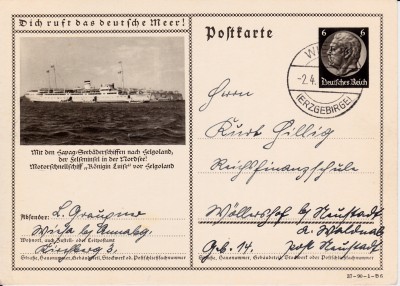 Dich ruft das deutsche Meer!
Mit den Hapag-Seebäderschiffen nach Helgoland,
der Felseninsel in der Nordsee!
Motorschnellschiff „Königin Luise“ vor Helgoland
Absender: L. Graupner
Wiesa bei Annaberg
Wohnort, auch Zustell- oder Leitpostamt
Kirchweg 3.
Straße, Hausnummer, Gebäudeteil, Stockwerk od. Postschließfachnummer
Postkarte
6 6
Deutsches Reich
-2.4.
(ERZGEBIRGE)
Herrn
Kurt Hillig
Reichsfinanzschule
Wöllershof bei Neustadt
a. Waldnab
Geb. 14. post Neustadt
Straße, Hausnummer, Gebäudeteil, Stockwerk oder Postschließfachnummer